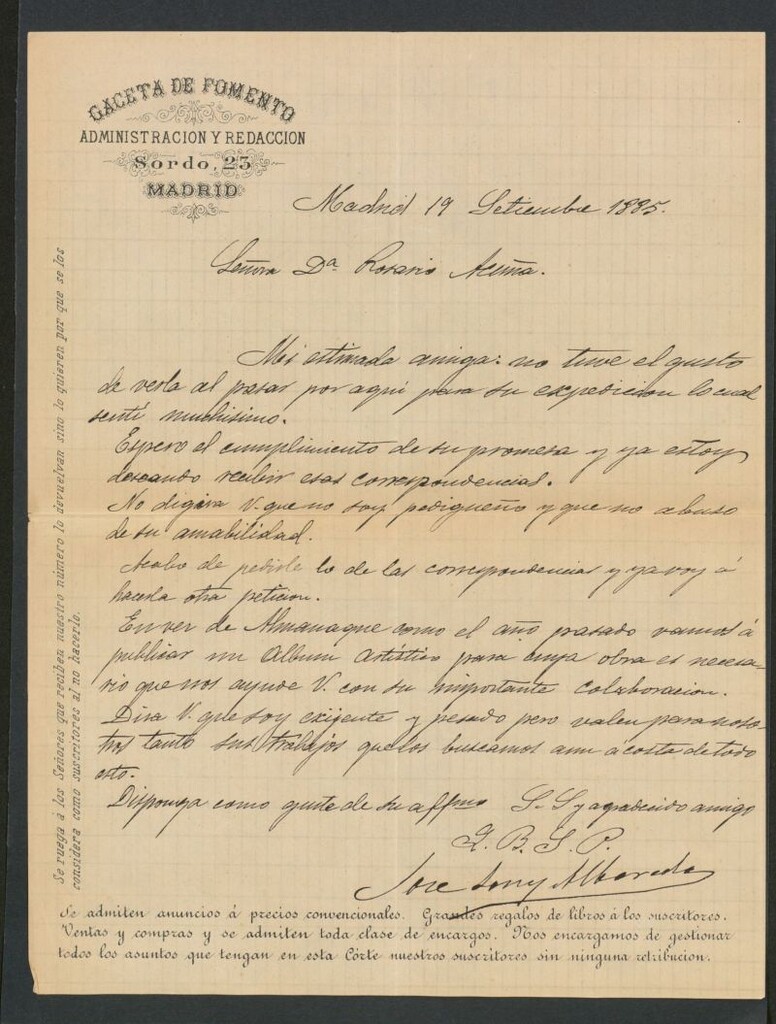 GACETA DE FOMENTO
ADMINISTRACION Y REDACCION
Sordo, 23
MADRID
Madrid 19 Setiembre 1885.
Señora Dª Rosario Acuña.
Mi estimada amiga: no tuve el gusto
de verla al pasar por aqui para su expedicion lo cual
sentí muchisimo.
Espero el cumplimiento de su promesa y ya estoy
deseando recibir esas correspondencias.
No digira V. que no soy pedigueño y que no abuso
de su amabilidad.
Acabo de pedirle lo de las correspondencias y ya voy á
hacerla otra peticion.
En vez de Almanaque como el año pasado vamos á
publicar un Album Artístico para cuya obra es necesa-
rio que nos ayude V. con su importante colaboracion.
Dira V. que soy exigente y pesado pero valen para noso-
tros tanto sus trabajos que los buscamos aun á costa de todo
esto.
Disponga como guste de su affmo S. S y agradecido amigo
Q. B. S. P.
Jose Alvareda
Se ruega á los Señores que reciben nuestro número lo devuelvan sino lo quieren por que se los
considera como suscritores al no hacerlo.
Se admiten anuncios á precios convencionales. Grandes regalos de libros á los suscritores.
Ventas y compras y se admiten toda clase de encargos. Nos encargamos de gestionar
todos los asuntos que tengan en esta Córte nuestros suscritores sin ninguna retribucion.